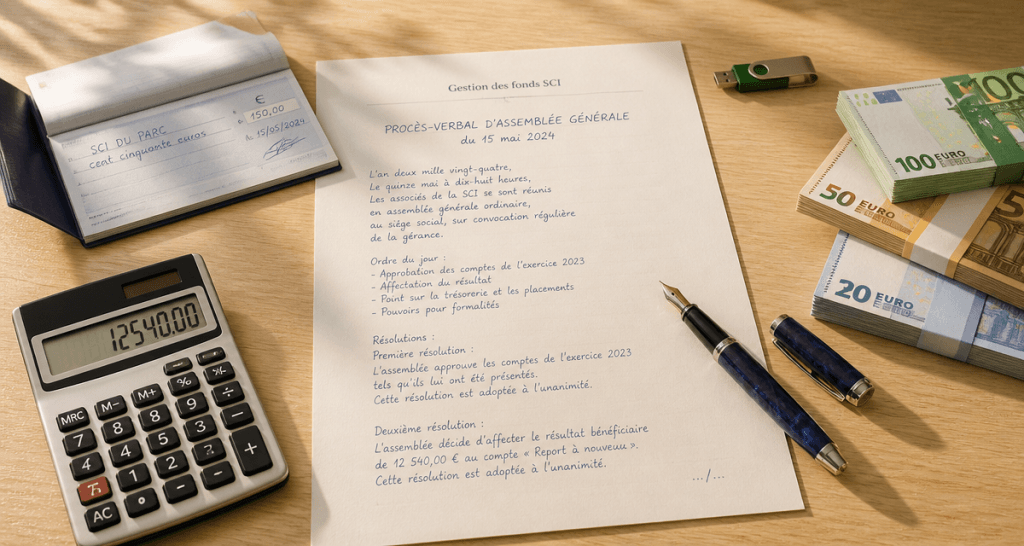 SCI DU PARC
cent cinquante euros
€
150,00
15/05/2024
12540.00
MRC
M-
M+
%
÷
7
8
8
9
−
4
4
5
3
+
1
2
AC
−
Gestion des fonds SCI
PROCÈS-VERBAL D'ASSEMBLÉE GÉNÉRALE
du 15 mai 2024
L'an deux mille vingt-quatre,
Le quinze mai à dix-huit heures,
Les associés de la SCI se sont réunis
en assemblée générale ordinaire,
au siège social, sur convocation régulière
de la gérance.
Ordre du jour :
- Approbation des comptes de l'exercice 2023
- Affectation du résultat
- Point sur la trésorerie et les placements
- Pouvoirs pour formalités
Résolutions :
Première résolution :
L'assemblée approuve les comptes de l'exercice 2023
tels qu'ils lui ont été présentés.
Cette résolution est adoptée à l'unanimité.
Deuxième résolution :
L'assemblée décide d'affecter le résultat bénéficiaire
de 12 540,00 € au compte « Report à nouveuu ».
Cette résolution est adoptée à l'unanimité.
.../...
100
100 EURO
50 EURO
20 EURO